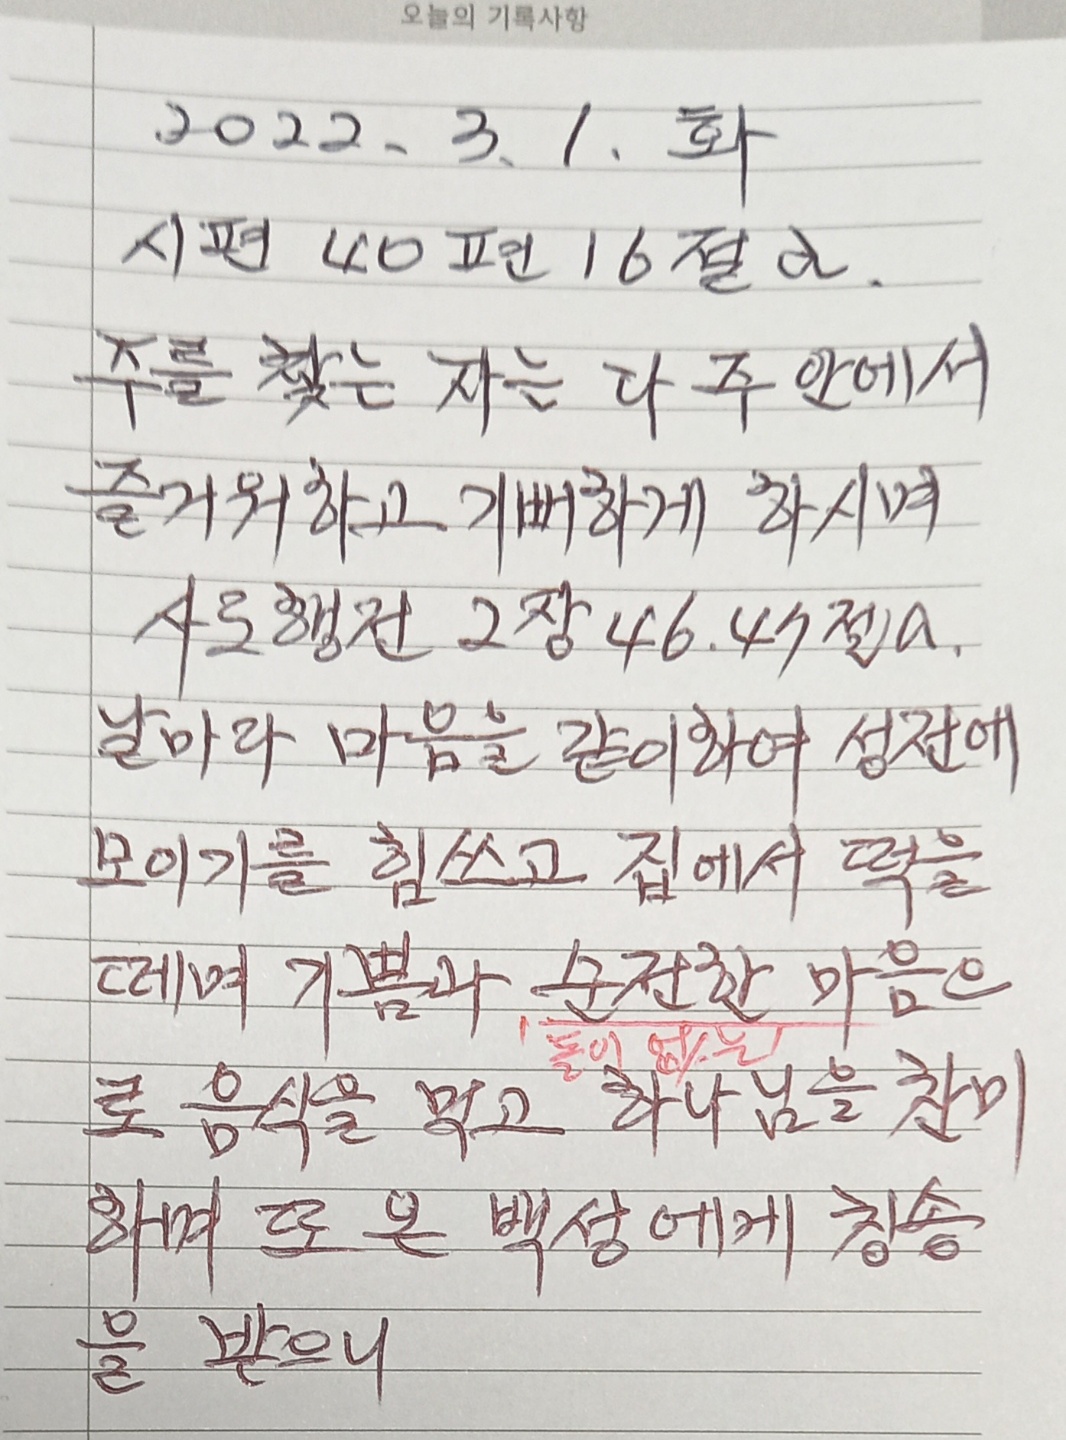 오늘의 기록사항
2022. 3. 1. 화
시편 40편 16절 a.
주를 찾는 자는 다 주 안에서
즐거워하고 기뻐하게 하시며
사도행전 2장 46.47절a.
날마다 마음을 같이하여 성전에
모이기를 힘쓰고 집에서 떡을
떼며 기쁨과 순전한 마음으
돌이 없는
로 음식을 먹고 하나님을 찬미
하며 또 온 백성에게 칭송
을 받으니